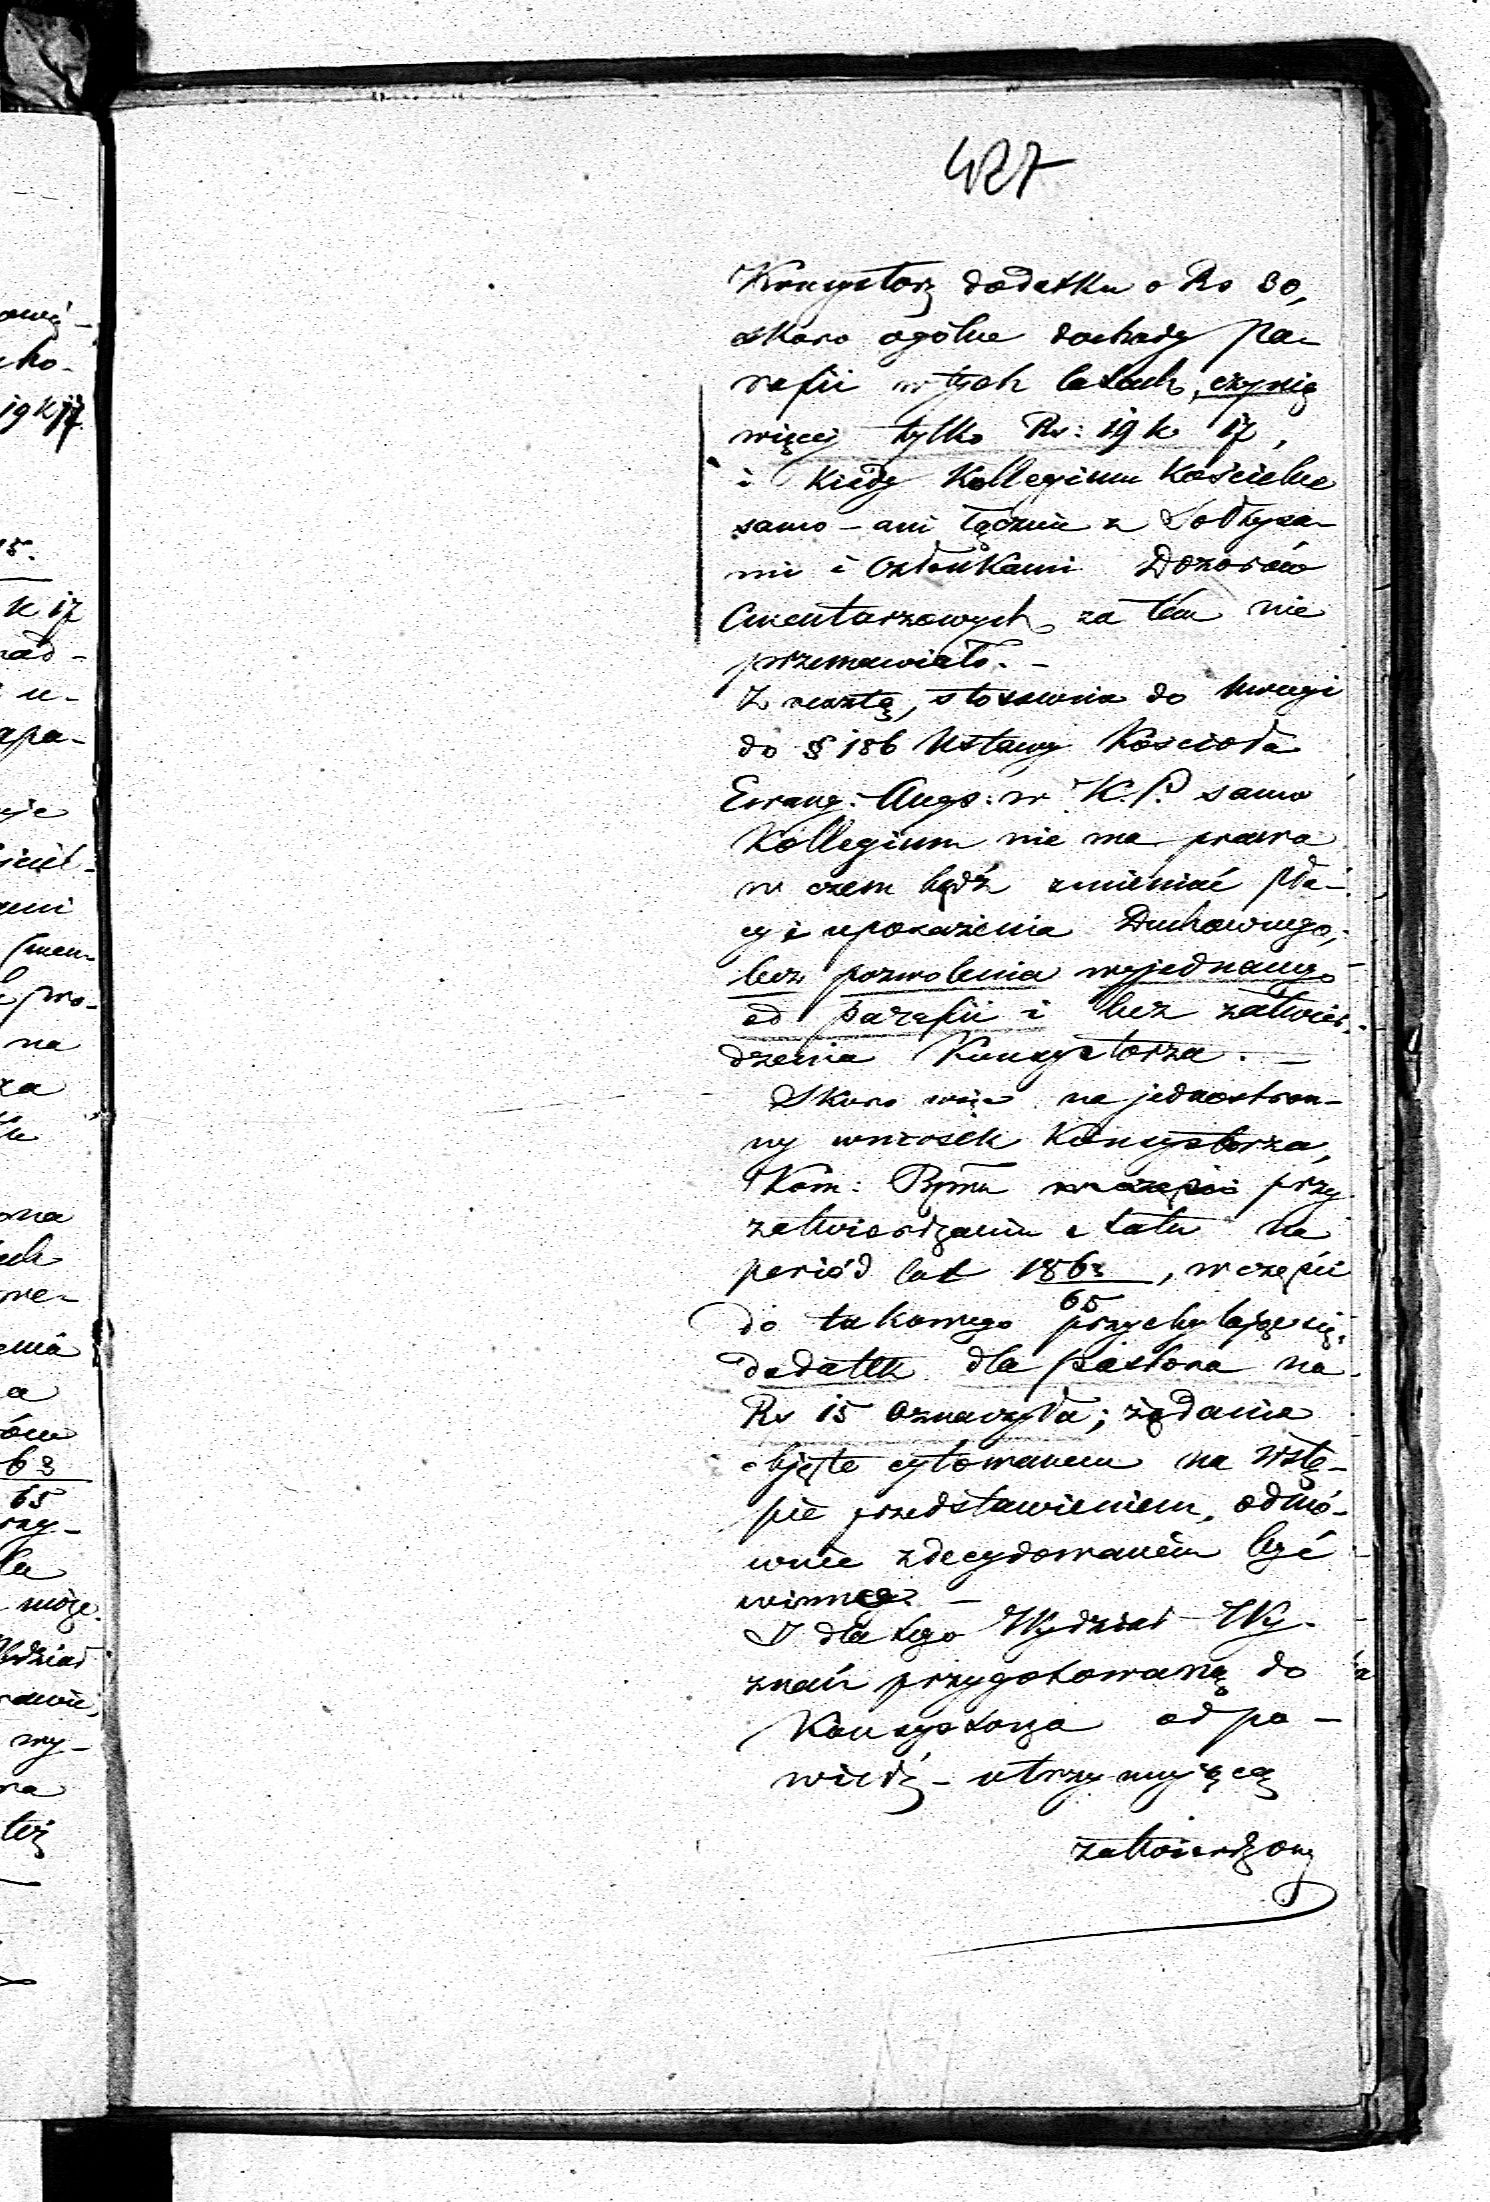 427
Konsystorz dodatku o Rs 30,
skoro ogólne dochody pa-
rafii w tych latach, czynią
więcej tylko Rs: 19 k 17,
i kiedy Kollegium Kościelne
samo – ani łącznie z Sołtysa-
mi i Członkami Dozorów
Cmentarzowych za tém nie
przemawiało. –
Z resztą, stosownie do Uwagi
do § 186 Ustawy Kościoła
Ewang: Augs: w K. P. samo
Kollegium nie ma prawa
w czem bądź zmieniać pła-
cy i uposażenia Duchownego,
bez pozwolenia wyjednanego
od parafii i bez zatwier-
dzenia Konsystorza. –
Skoro więc na jednostron-
ny wniosek Konsystorza,
Kom: Rząd: przy
zatwierdzaniu etatu na
periód lat 1863/65, w części
do takowego przychylając się,
dodatek dla pastora na
Rs 15 oznaczyła; żądanie
objęte cytowanem na wstę-
pie przedstawieniem, odmó-
wnie zdecydowanem być
winno –
I dla tego Wydział Wy-
znań przygotowaną do
Konsystorza odpo-
wiedź – utrzymującą
zatwierdzony
owej-
cho-
19 k 17
15.
k 17
nad-
u-
apa-
ciel-
ami
Cmen-
pro-
na
za
ona
ich
enia
a
ów
63
65
rzy-
ła
może
Wydział
wy-
na
też